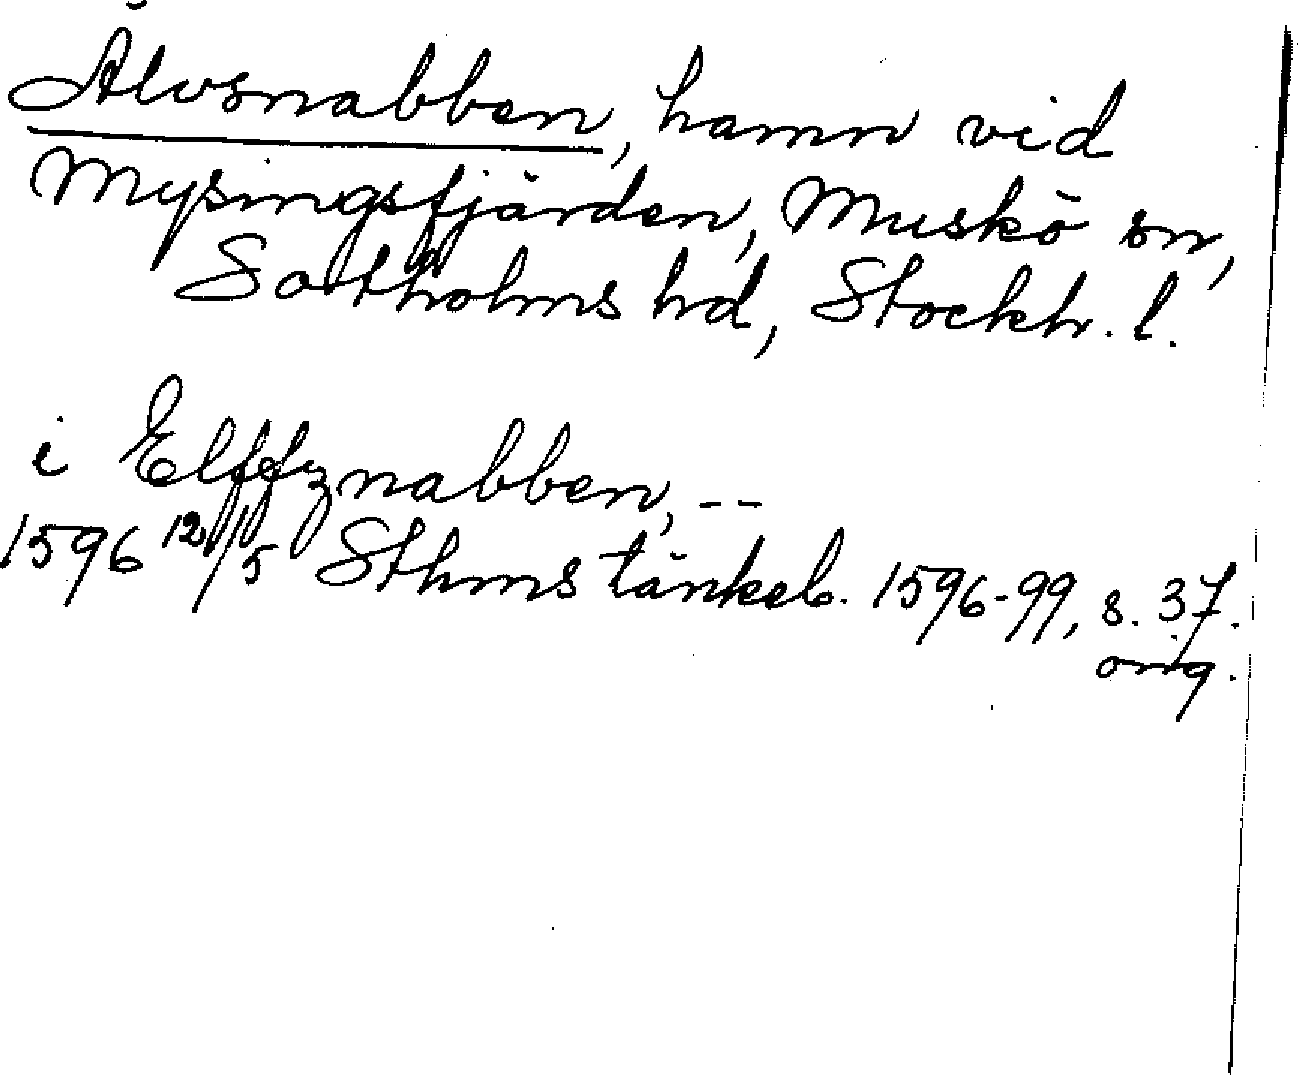 Älvsnabben, hamn vid
Mysingsfjärden, Muskö sn,
Sotholms hd, Stockh. l.
i Elffznabben, --
1596 12/5 Sthms tänkeb. 1596-99, s. 37.
orig.